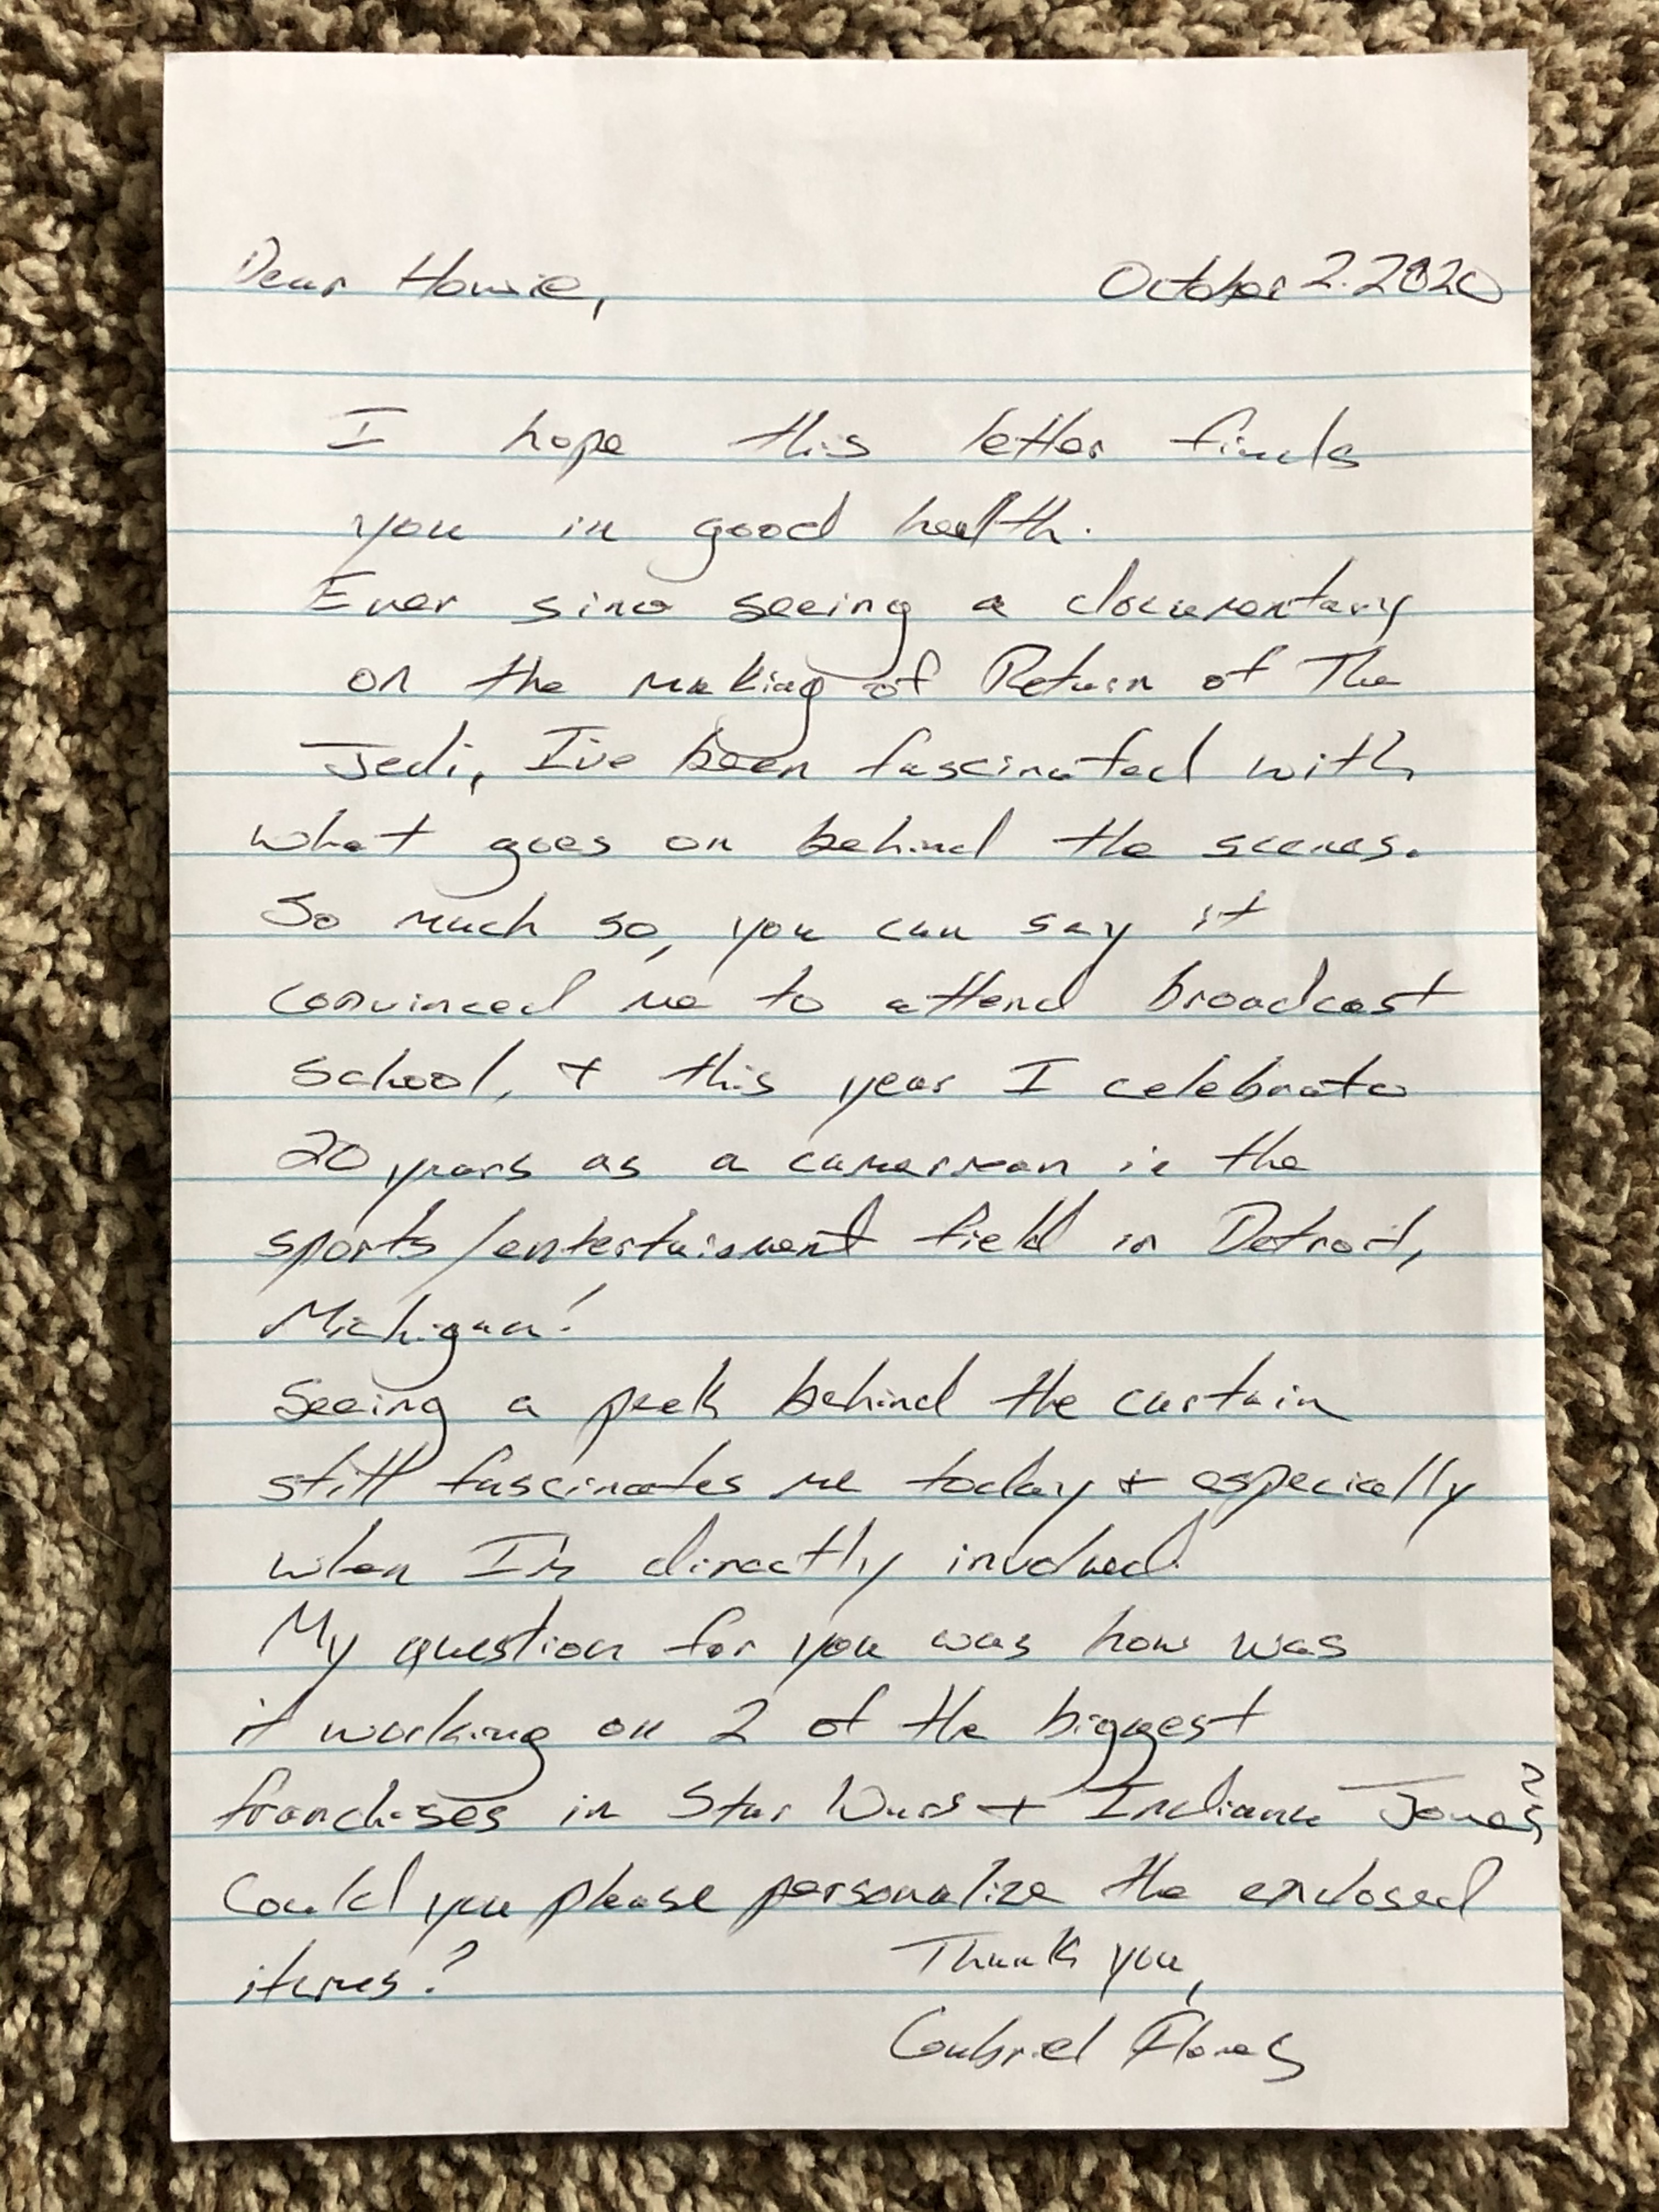 Dear Howie, October 2. 2020
I hope this letter finds
you in good health.
Ever since seeing a documentary
on the making of Return of The
Jedi, I've been fascinated with
what goes on behind the scenes.
So much so, you can say it
convinced me to attend broadcast
school, + this year I celebrate
20 years as a cameraman in the
sports/entertainment field in Detroit,
Michigan!
Seeing a peek behind the curtain
still fascinates me today + especially
when I'm directly involved.
My question for you was how was
it working on 2 of the biggest
franchises in Star Wars + Indiana Jones?
Could you please personalize the enclosed
items?
Thank you,
Gabriel Flores